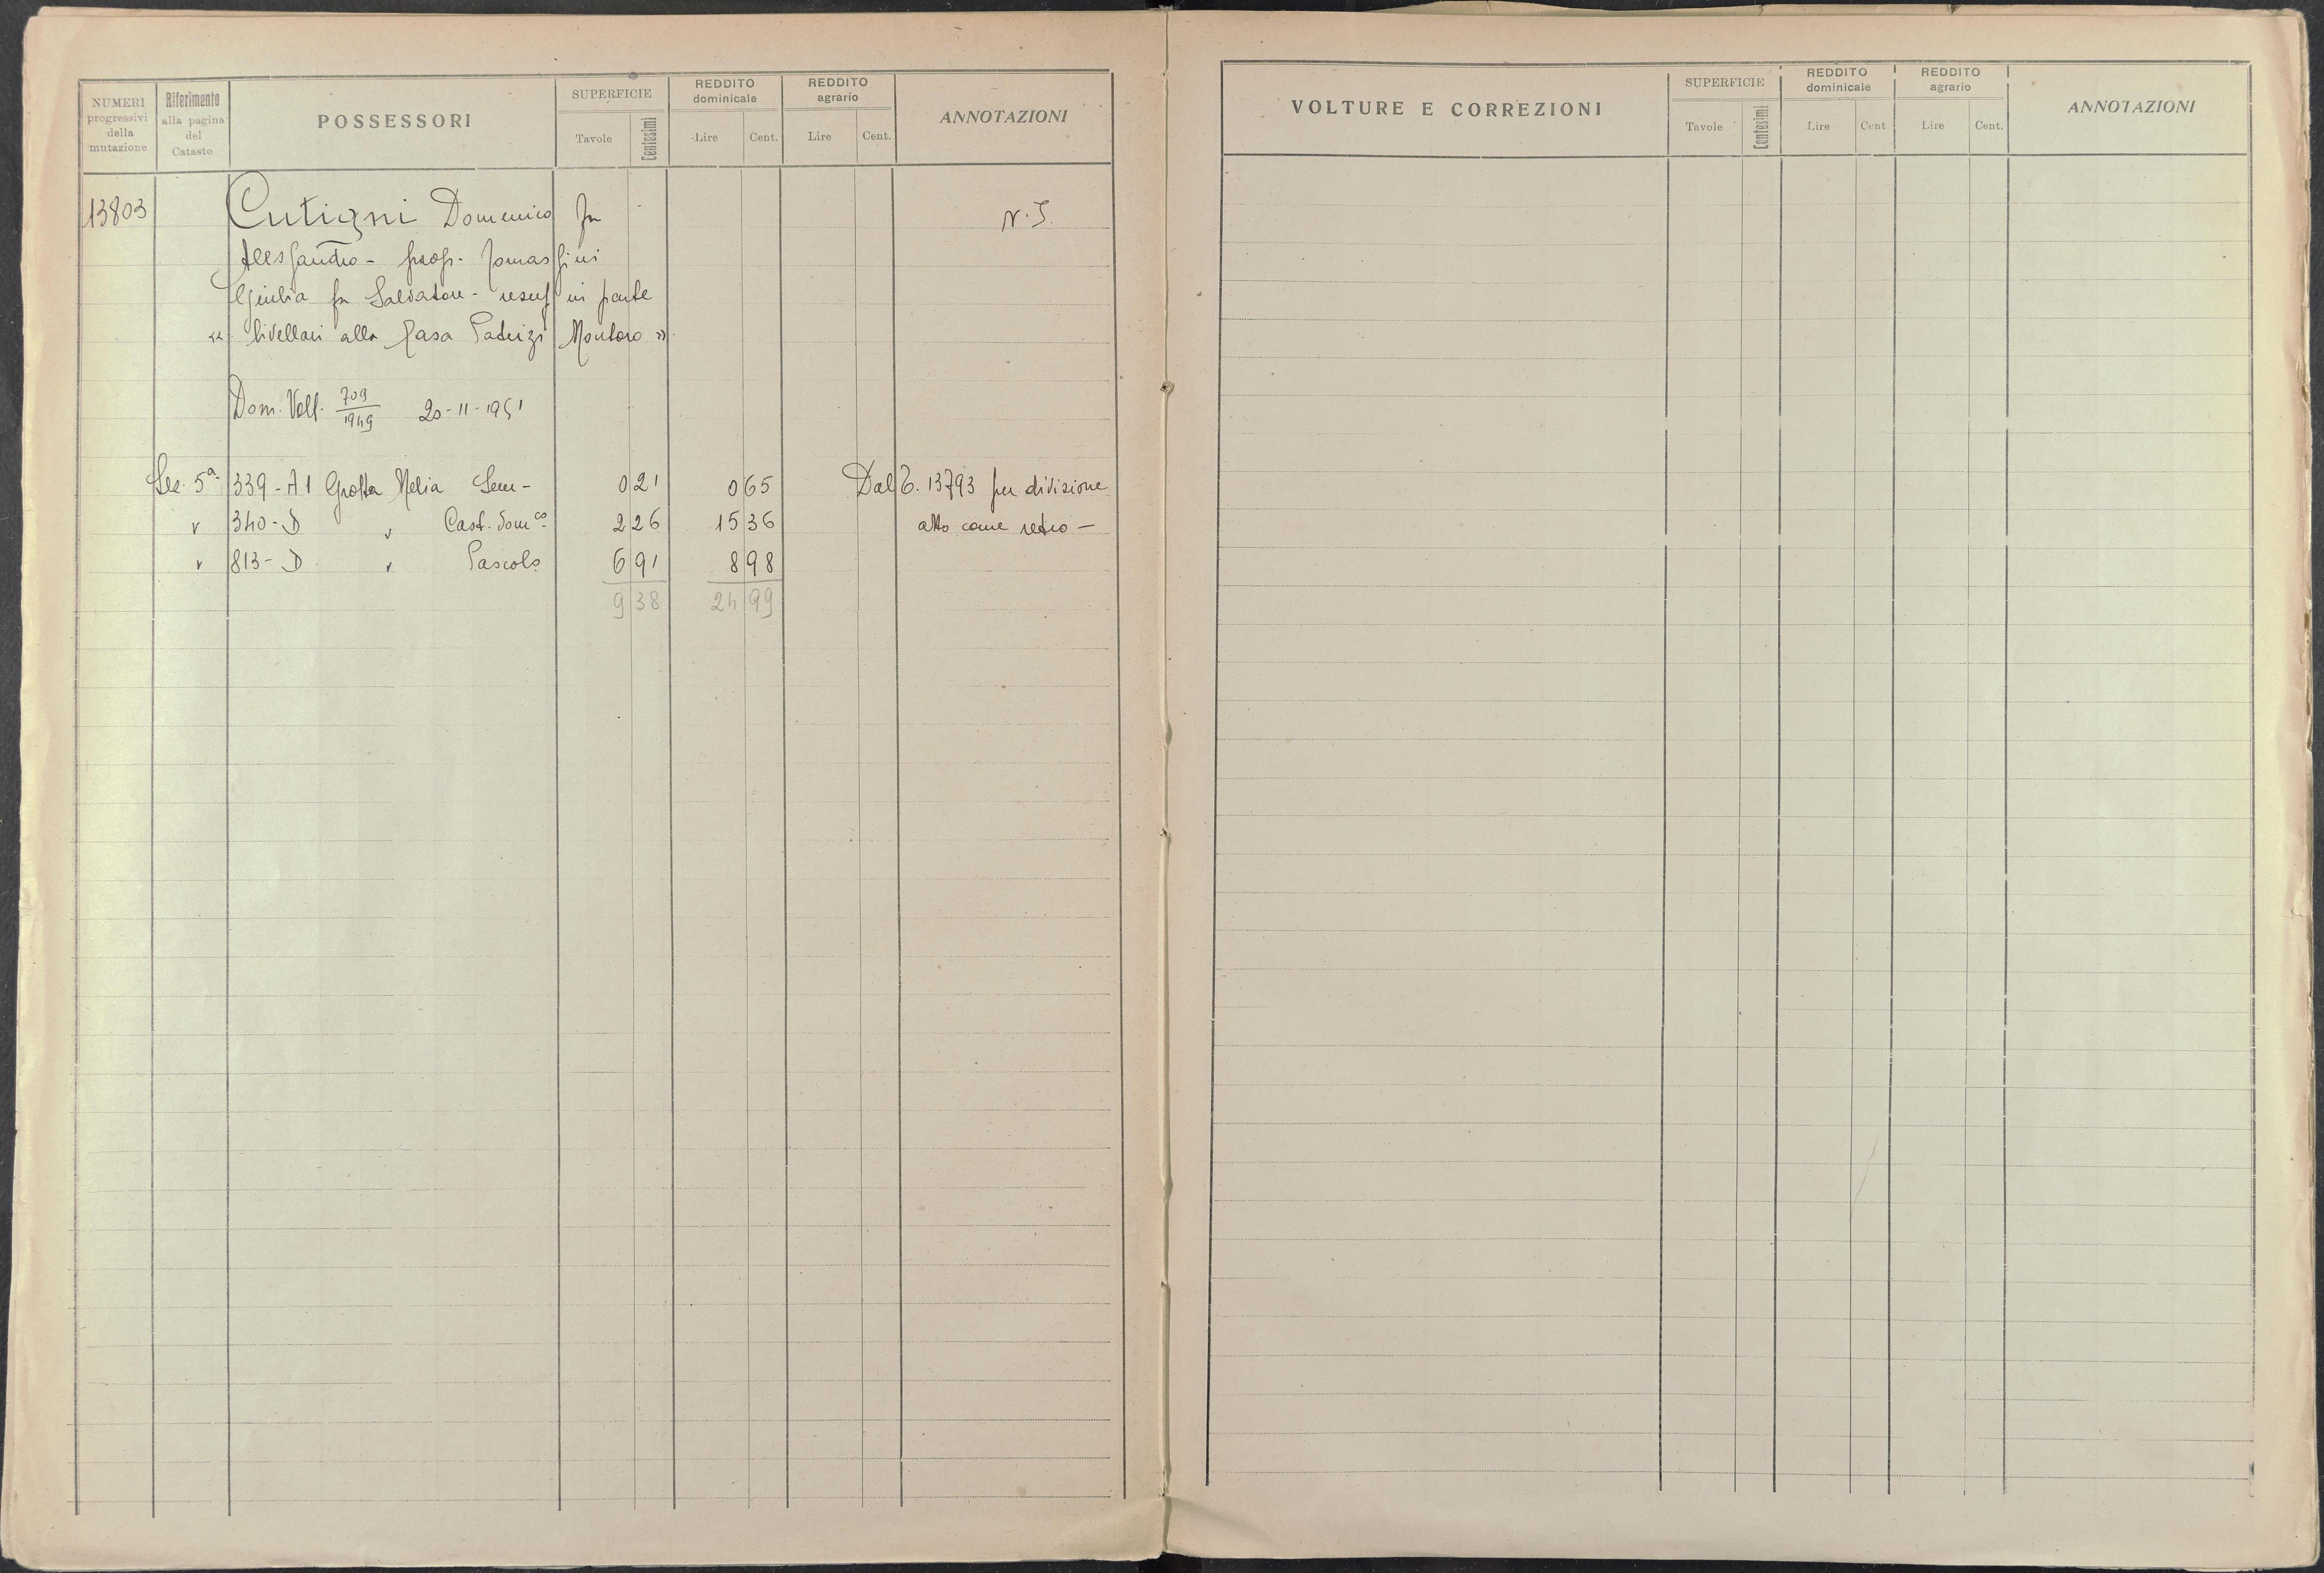 NUMERI progressivi della mutazione
Riferimento alla pagina del Catasto
POSSESSORI
SUPERFICIE
Tavole Centesimi
REDDITO dominicale
Lire Cent.
REDDITO agrario
Lire Cent.
ANNOTAZIONI
13803 Cutigni Domenico fu N.S.
Alessandro - prop. Tomassini
Giulia fu Salvatore - usuf in parte
« livellari alla Casa Patrizi Montoro »
Dom. Volt. 709/1949 20-11-1951
Sez. 5a 339-A1 Grotta Melia Sem- 0 21 0 65 Dal 6. 13793 per divisione
" 340-D " Cast. dom.co 2 26 15 36 atto come retro -
" 813-D " Pascolo 6 91 8 98
9 38 24 99
VOLTURE E CORREZIONI
SUPERFICIE
Tavole Centesimi
REDDITO dominicale
Lire Cent
REDDITO agrario
Lire Cent.
ANNOTAZIONI